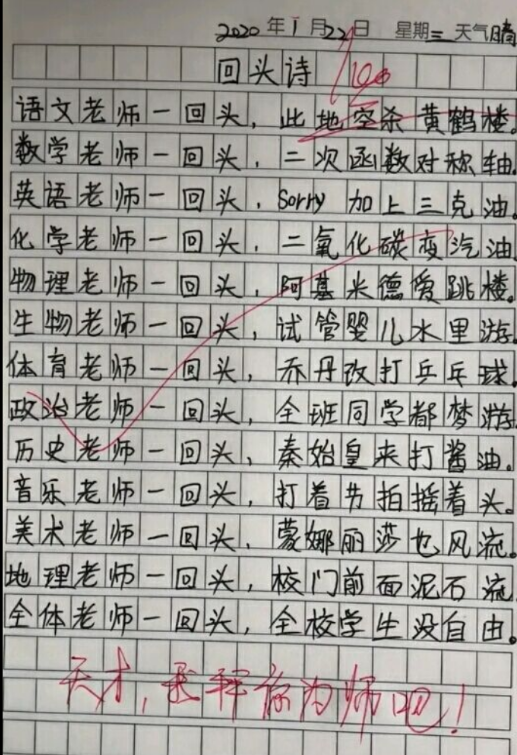 2020年1月22日 星期三 天气晴
回头诗
100
语文老师一回头，此地空杀黄鹤楼。
数学老师一回头，二次函数对称轴。
英语老师一回头，Sorry 加上三克油。
化学老师一回头，二氧化碳变汽油
物理老师一回头，阿基米德爱跳楼。
生物老师一回头，试管婴儿水里游。
体育老师一回头，乔丹改打乒乓球。
政治老师一回头，全班同学都梦游
历史老师一回头，秦始皇来打酱油。
音乐老师一回头，打着节拍摇着头。
美术老师一回头，蒙娜丽莎也风流。
地理老师一回头，校门前面泥石流
全体老师一回头，全校学生没自由。
天才，我拜你为师吧！